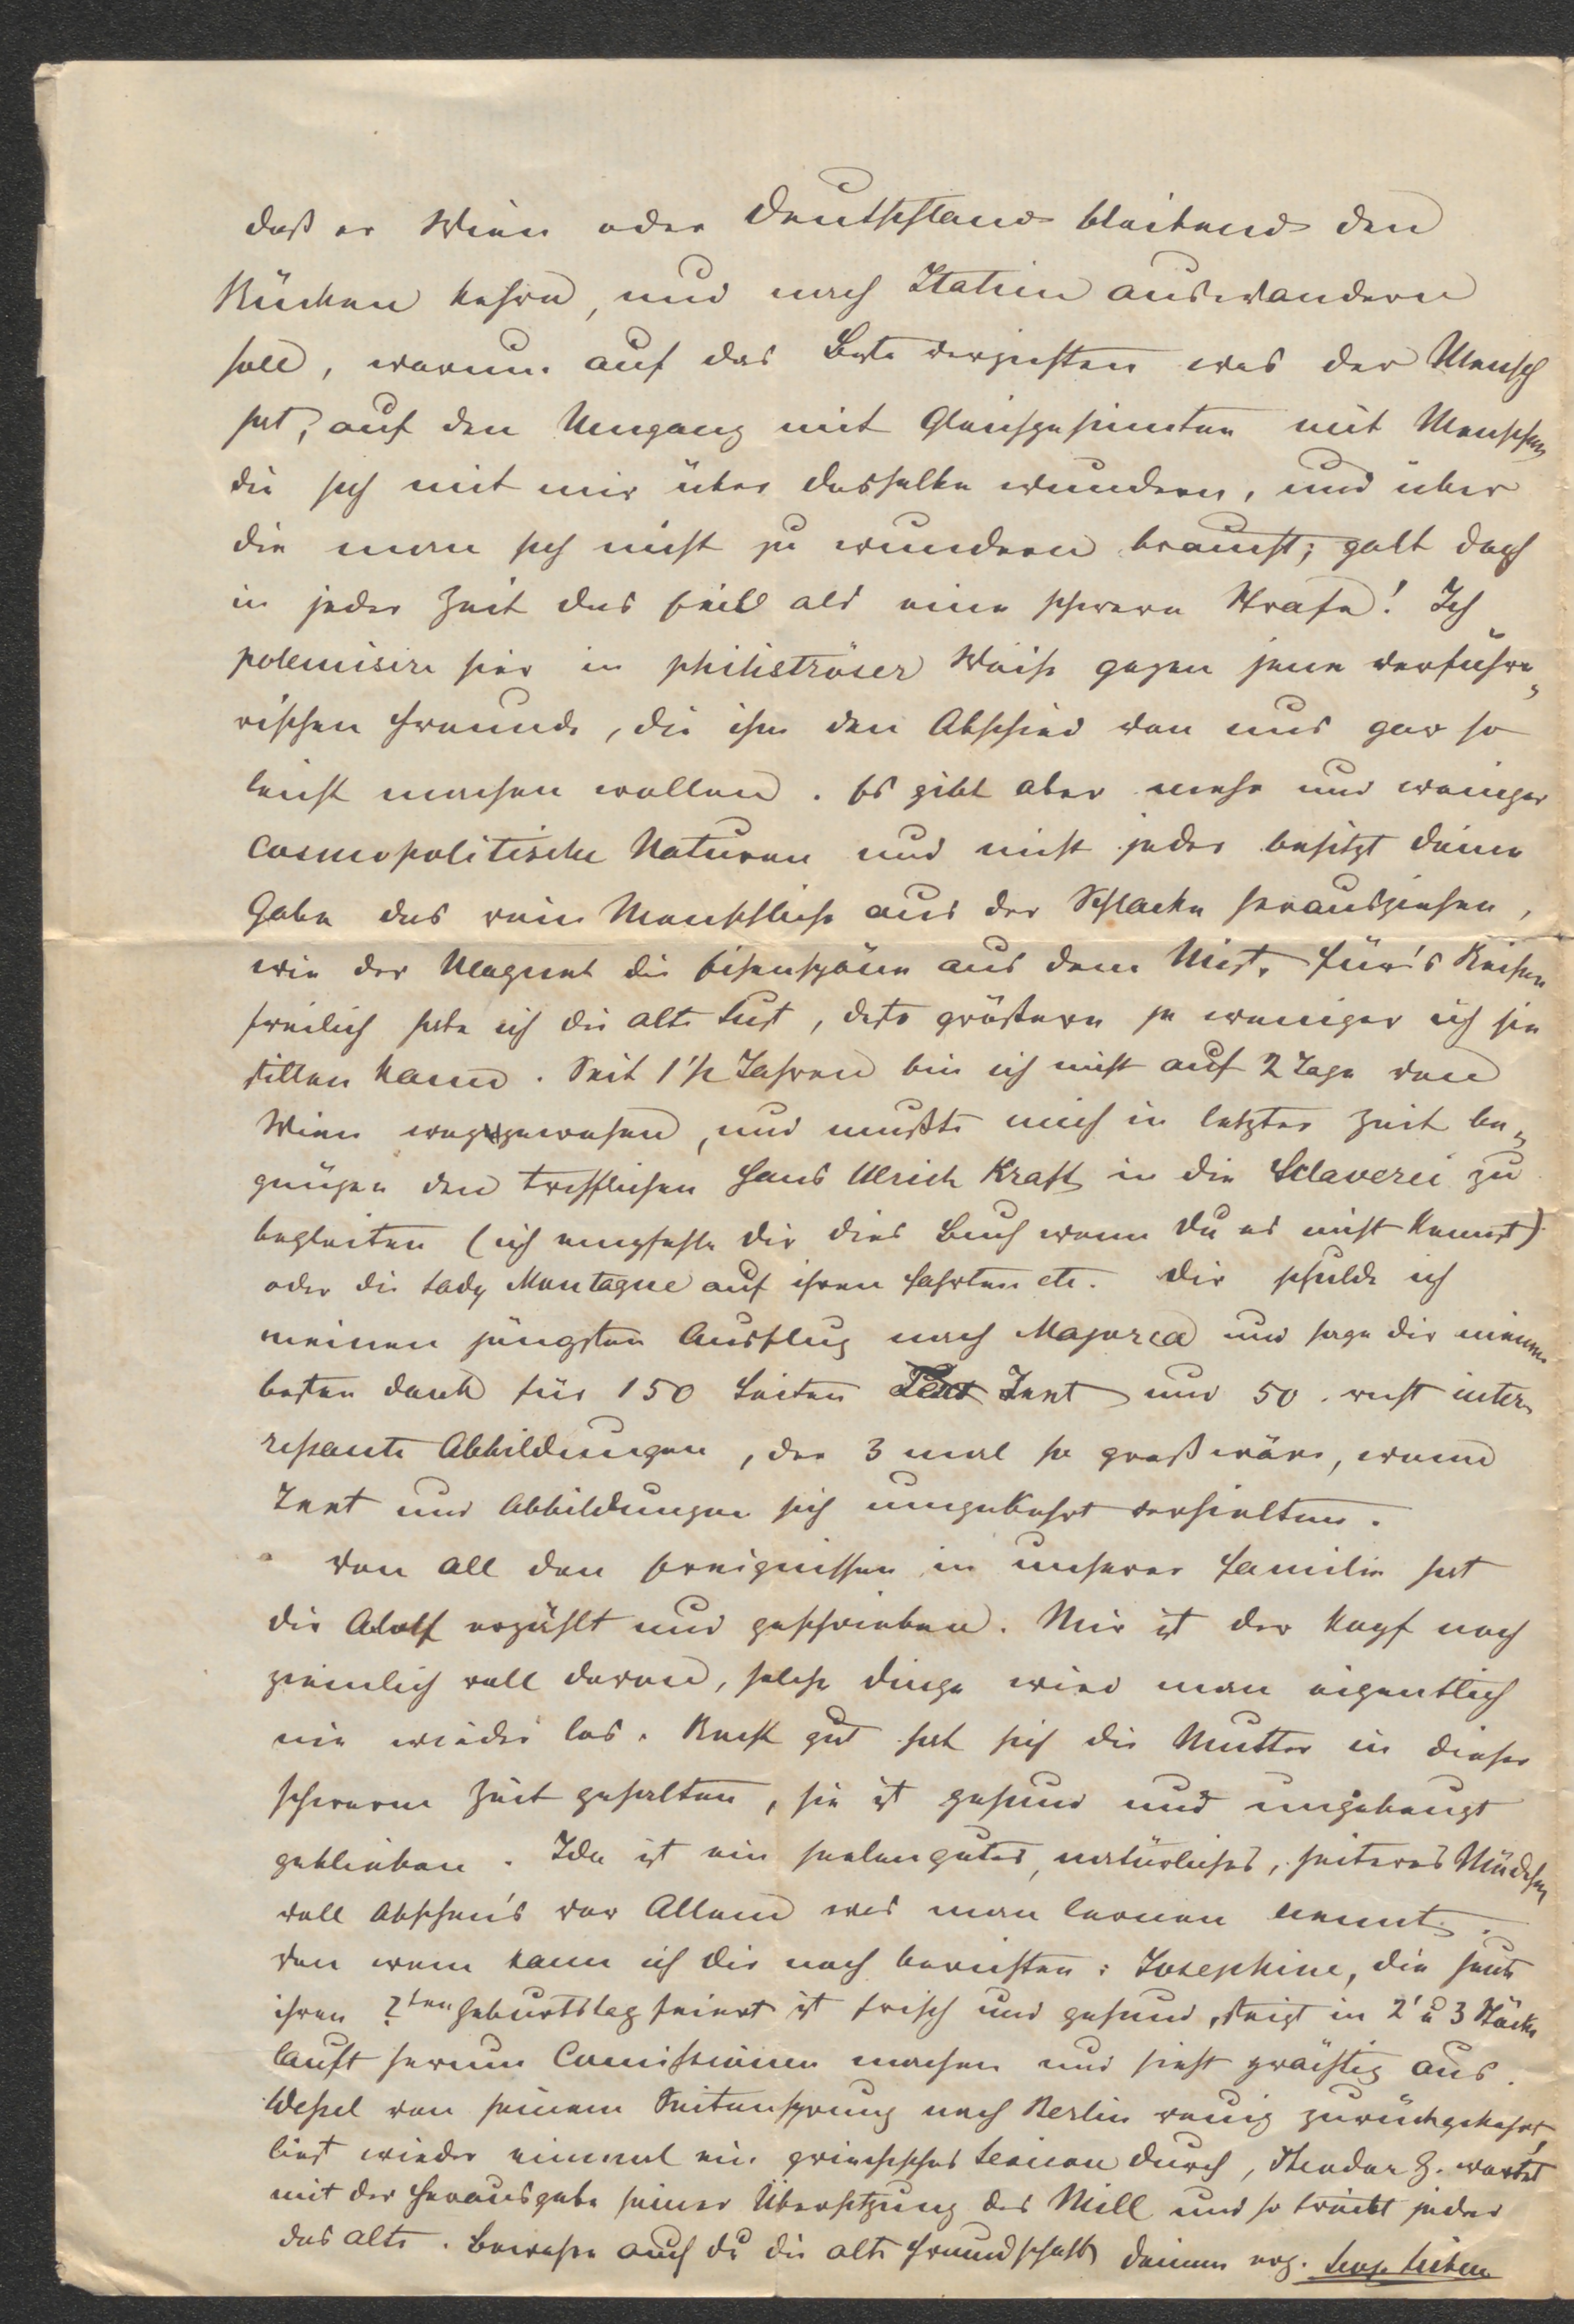 daß er Wien oder Deutschland bleibend den
Rücken kehren, und nach Italien auswandern
soll, warum auf das Beste verzichten was der Mensch
hat, auf den Umgang mit Gleichgesinnten mit Menschen
die sich mit mir über dasselbe wundern, und über
die man sich nicht zu wundern braucht; galt doch
in jeder Zeit das Exil als eine schwere Strafe! Ich
polemisire hier in philiströser Weise gegen jene verführe„
rischen Freunde, die ihm den Abschied von uns gar so
leicht machen wollen. Es gibt aber mehr und weniger
cosmopolitische Naturen und nicht jeder besitzt deine
Gabe das rein Menschliche aus der Schlacke herausziehen,
wie der Magnet die Eisenspäne aus dem Mist. Für's Reisen
freilich habe ich die alte Lust, desto größere je weniger ich sie
stillen kann. Seit 1½ Jahren bin ich nicht auf 2 Tage von
Wien weggewesen, und mußte mich in letzter Zeit be„
gnügen den trefflichen Hans Ulrich Krafft in die Sclaverei zu
begleiten (ich empfehle dir dies Buch wenn du es nicht kennst)
oder die Lady Montague auf ihren Fahrten etc. Dir schulde ich
meinen jüngsten Ausflug nach Majorca und sage dir meinen
besten Dank für 150 Seiten Text und 50 recht inter„
ressante Abbildungen, der 3 mal so groß wäre, wenn
Text und Abbildungen sich umgekehrt verhielten.
Von all den Ereignissen in unserer Familie hat
dir Adolf erzählt und geschrieben. Mir ist der Kopf noch
ziemlich voll davon, solche Dinge wird man eigentlich
nie wieder los. Recht gut hat sich die Mutter in dieser
schweren Zeit gehalten, sie ist gesund und ungebeugt
geblieben. Ida ist ein seelengutes, natürliches, heiteres Mädchen
voll Abscheu's vor Allem was man lernen nennt.
Von wem kann ich dir noch berichten: Josephine, die heute
ihren ?ten Geburtstag feiert ist frisch und gesund, steigt in 2' u 3 Stöcke
lauft herum Comissionen machen und sieht prächtig aus.
Wessel von seinem Seitensprung nach Berlin reuig zurückgekehrt,
liest wieder einmal ein griechisches Lexicon durch, Theodor G. wartet
mit der Herausgabe seiner Übersetzung des Mill und so treibt jeder
das alte. Bewahre auch du die alte Freundschaft deinem erg.